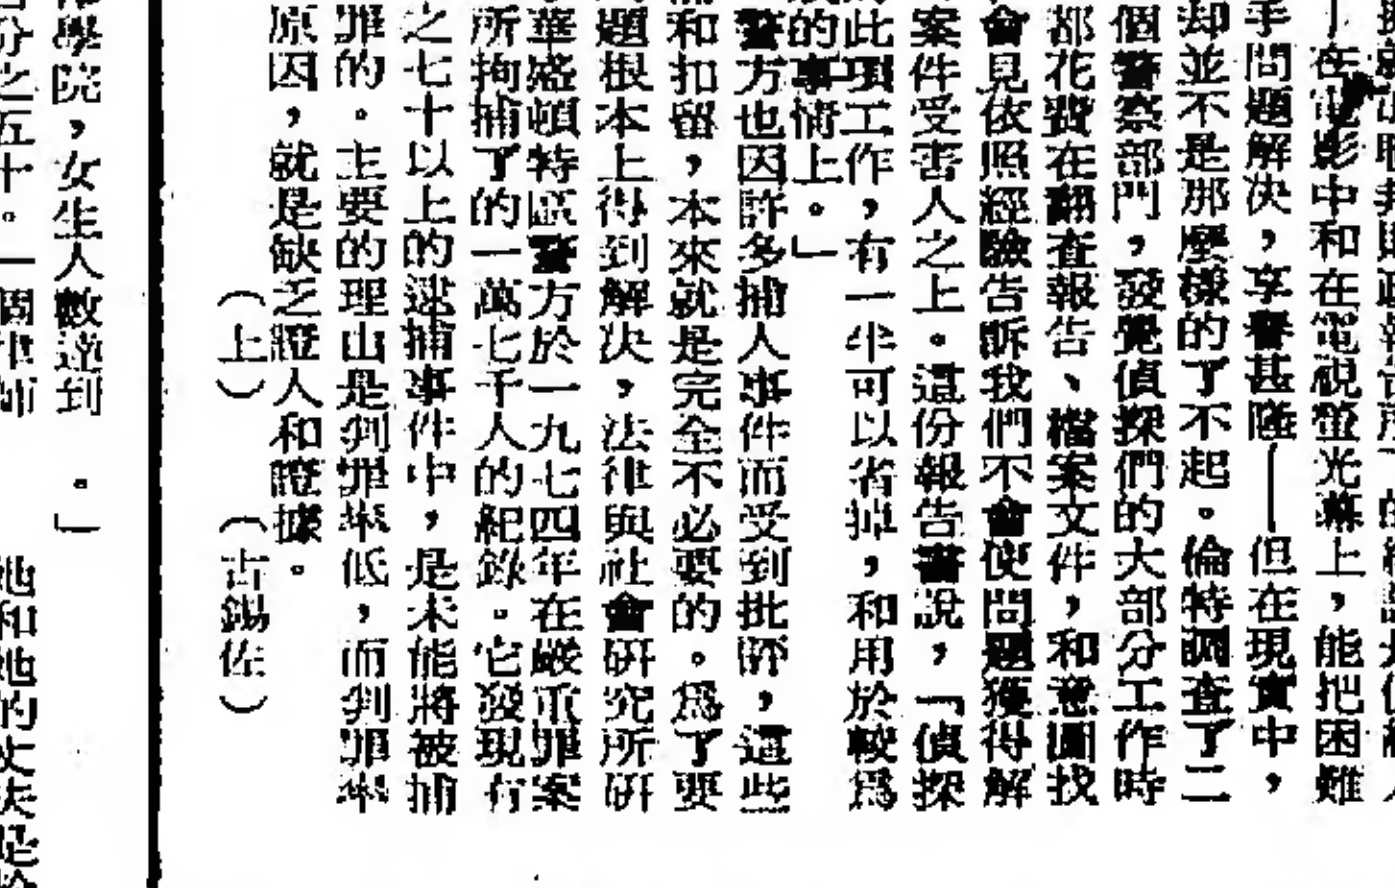 ─在電影中和在電視螢光幕上，能把困難
手問題解決，享譽甚隆──但在現實中，
却並不是那麼樣的了不起。倫特調查了二
個警察部門，發覺偵探們的大部分工作時
都花費在翻查報告、檔案文件，和意圖找
會見依照經驗告訴我們不會使問題獲得解
案件受害人之上。這份報告書說，「偵探
此項工作，有一半可以省掉，和用於較爲
的事情上。」
警方也因許多捕人事件而受到批評，這些
和扣留，本來就是完全不必要的。爲了要
題根本上得到解决，法律與社會研究所研
華盛頓特區警方於一九七四年在嚴重罪案
所拘捕了的一萬七千人的紀錄。它發現有
之七十以上的逮捕事件中，是未能將被捕
罪的。主要的理由是判罪率低，而判罪率
原因，就是缺乏證人和證據。
（上）（古錫佐）
學院，女生人數達到　。」
分之五十。一個律師　她和她的丈夫是